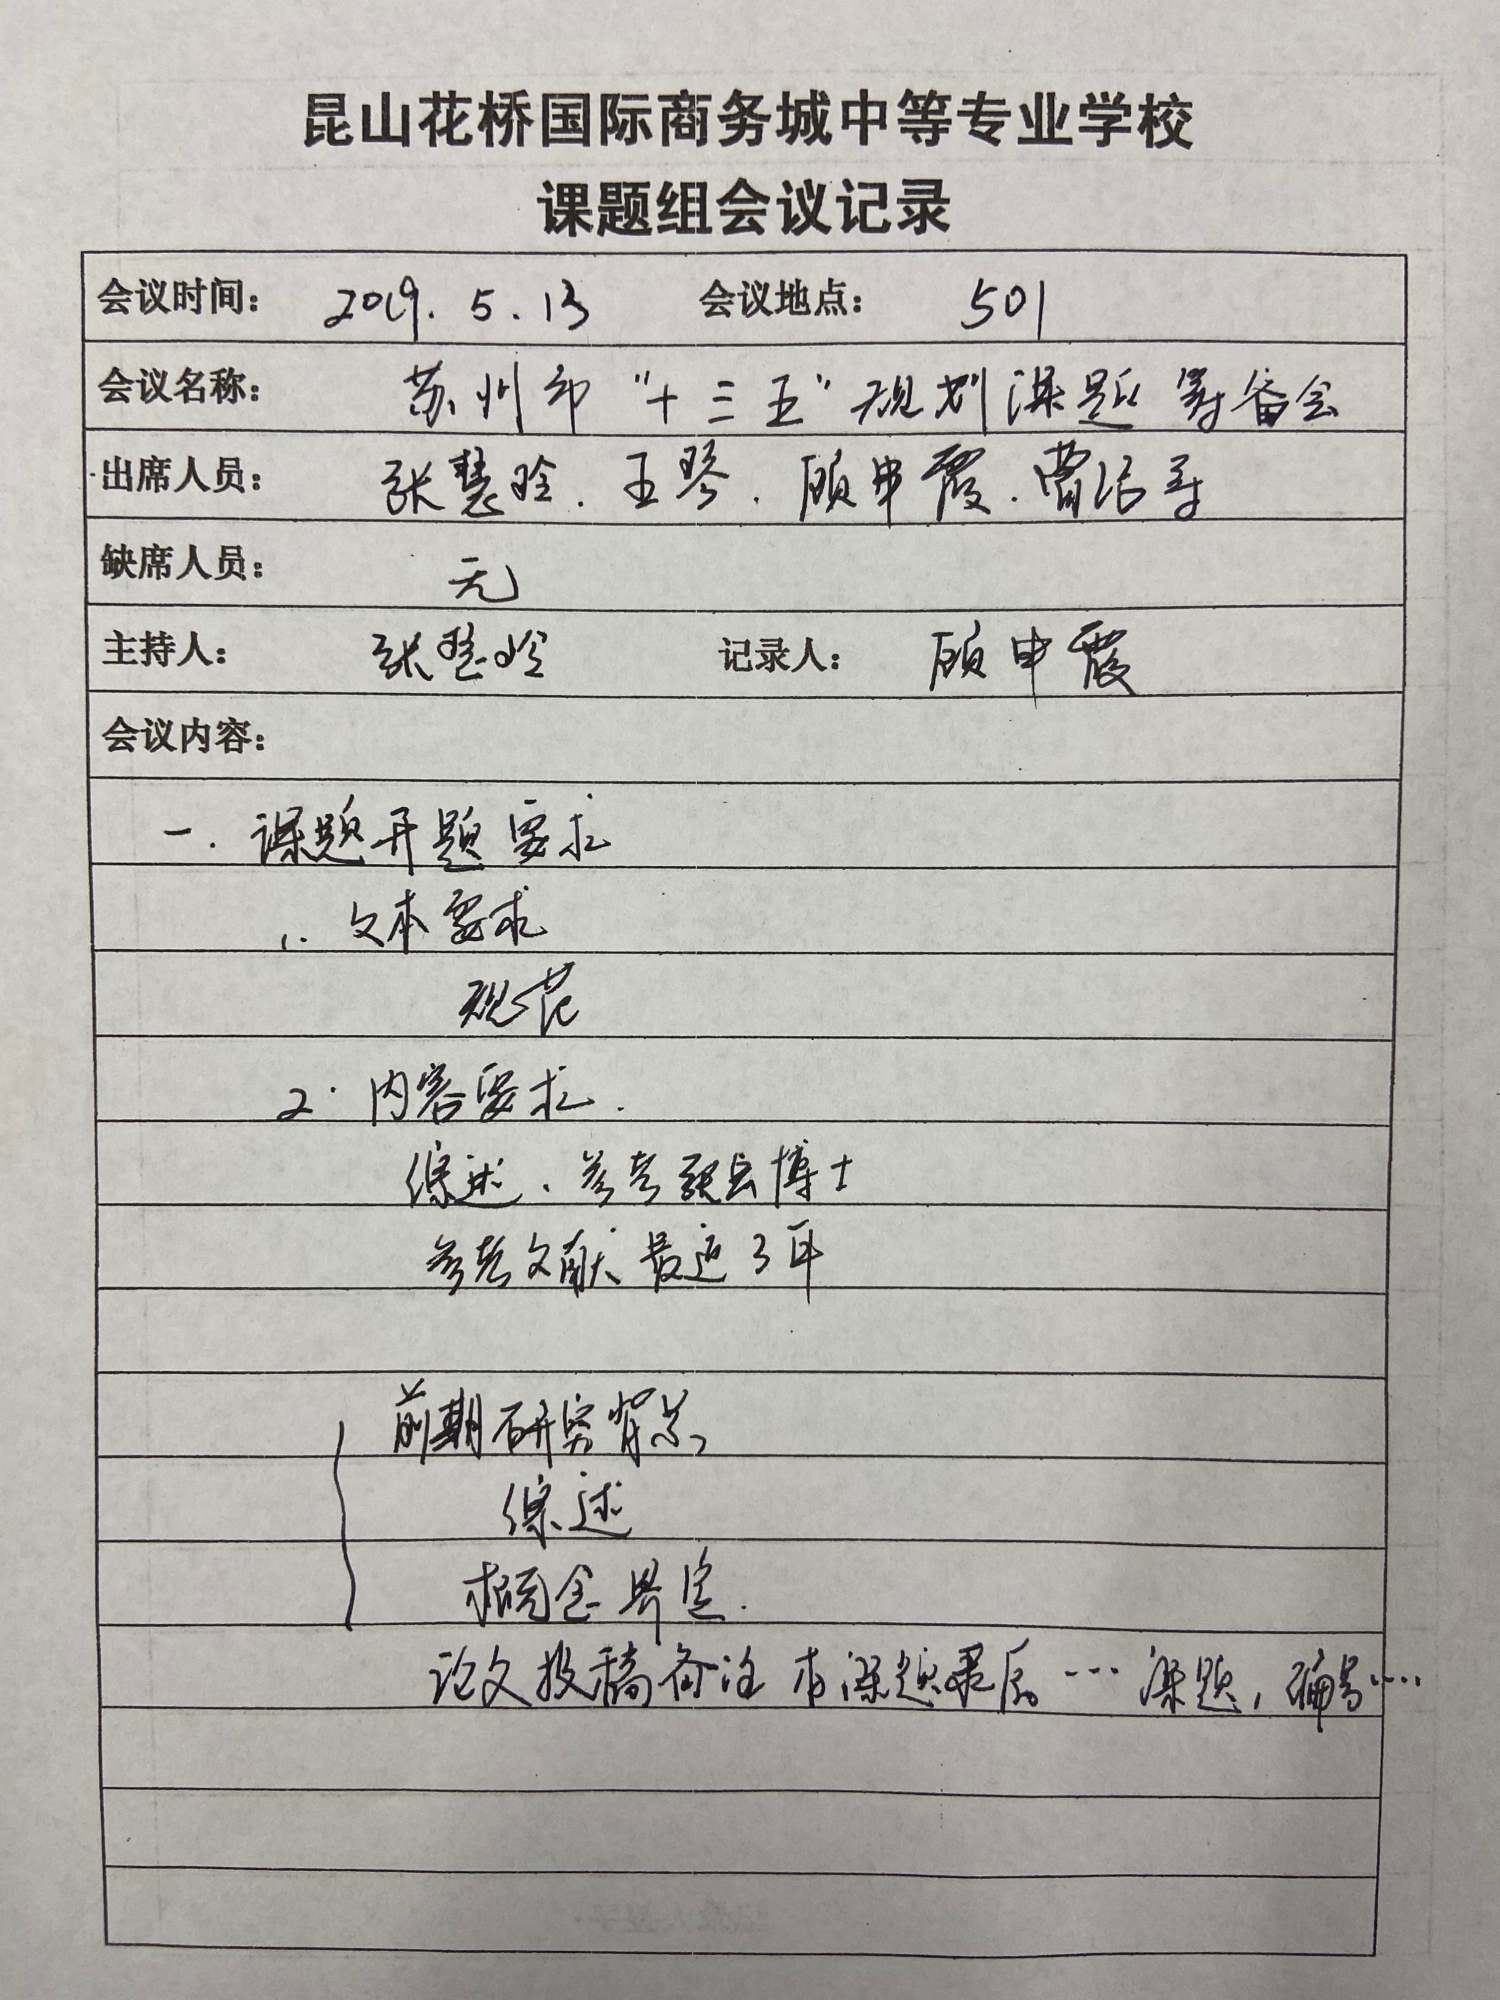 昆山花桥国际商务城中等专业学校
课题组会议记录
会议时间: 2019.5.13 会议地点: 501
会议名称: 苏州市“十三五”规划课题筹备会
出席人员: 张慧玲.王琴.顾申霞.曹
缺席人员: 无
主持人: 张慧玲 记录人: 顾申霞
会议内容:
一.课题开题要求
1.文本要求
规范
2.内容要求.
综述、参考 博士
参考文献最近3年
前期研究背景
综述
概念界定.
论文投稿备注 本课题 …课题,编号…